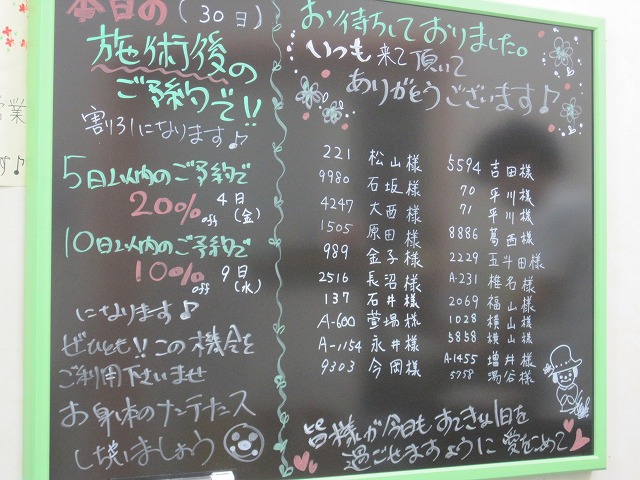 本日の(30日)
施術後の
ご予約で!!
割引になります♪
5日以内のご予約で
20%off 4日(金)
10日以内のご予約で
10%off 9日(水)
になります♪
ぜひとも!!この機会を
ご利用下さいませ
お身体のメンテナンス
しましょう
お待ちしておりました。
いつも来て頂いて
ありがとうございます♪
221 松山様
9980 石坂様
4247 大西様
1505 原田様
989 金子様
2516 長沼様
137 石井様
A-600 萱場様
A-1154 永井様
9303 今岡様
5594 吉田様
70 平川様
71 平川様
8886 葛西様
2229 五牛田様
A-231 椎名様
2069 福山様
1028 横山様
5858 横山様
A-1455 増井様
5758 湯谷様
皆様が今日もすてきな1日を
過ごせますように愛をこめて
営業
す♪